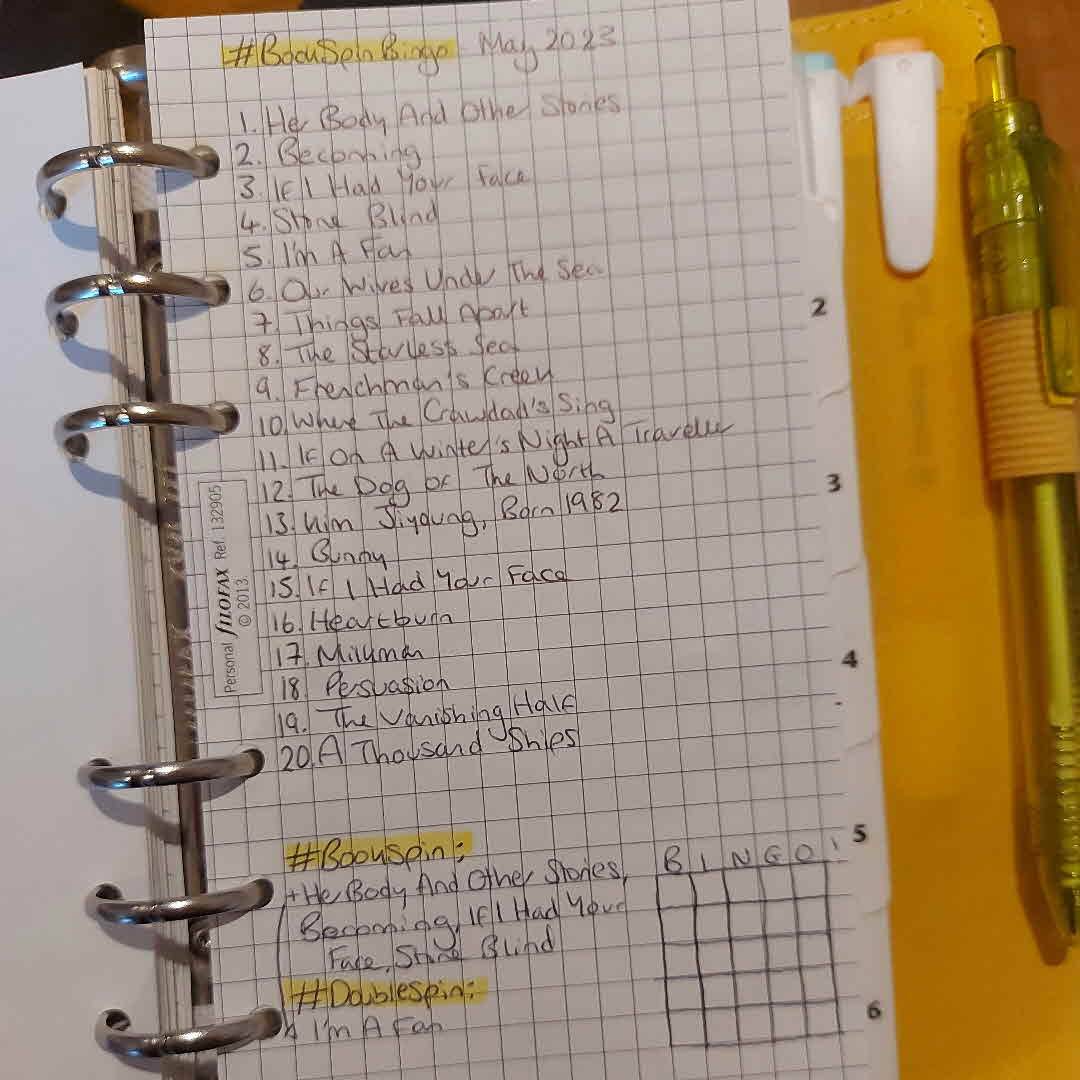 #BookSpinBingo May 2023
1. Her Body And Other Stories
2. Becoming
3. If I Had Your Face
4. Stone Blind
5. I'm A Fan
6. Our Wives Under The Sea
7. Things Fall Apart
8. The Starless Sea
9. Frenchman's Creek
10. Where The Crawdad's Sing
11. If On A Winter's Night A Traveller
12. The Dog Of The North
13. Kim Jiyoung, Born 1982
14. Bunny
15. If I Had Your Face
16. Heartburn
17. Milkman
18. Persuasion
19. The Vanishing Half
20. A Thousand Ships
Personal FILOFAX Ref. 132905
© 2013
#BookSpin:
Her Body And Other Stories,
Becoming, If I Had Your
Face, Stone Blind
#DoubleSpin:
I'm A Fan
BINGO!
2
3
4
5
6